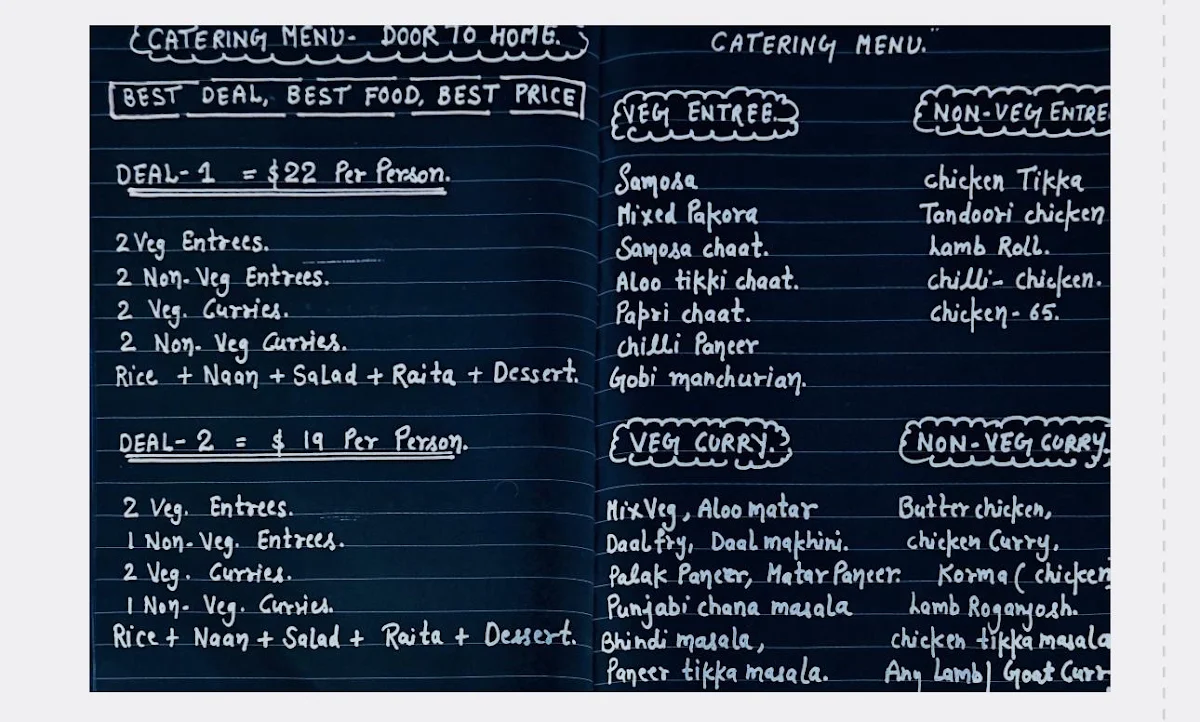 CATERING MENU- DOOR TO HOME.
BEST DEAL, BEST FOOD, BEST PRICE
DEAL-1 = $22 Per Person.
2 Veg Entrees.
2 Non-Veg Entrees.
2 Veg. Curries.
2 Non- Veg Curries.
Rice + Naan + Salad + Raita + Dessert.
DEAL-2 = $ 19 Per Person.
2 Veg. Entrees.
1 Non-Veg. Entrees.
2 Veg. Curries.
1 Non- Veg. Curries.
Rice + Naan + Salad + Raita + Dessert.
CATERING MENU."
VEG ENTREE.
Samosa
Mixed Pakora
Samosa chaat.
Aloo tikki chaat.
Papri chaat.
chilli Paneer
Gobi manchurian.
NON-VEG ENTRE
chicken Tikka
Tandoori chicken
Lamb Roll.
chilli- Chicken.
chicken- 65.
VEG CURRY.
Mix Veg, Aloo matar
Daal fry, Daal makhini.
Palak Paneer, Matar Paneer.
Punjabi chana masala
Bhindi masala,
Paneer tikka masala.
NON-VEG CURRY.
Butter chicken,
chicken Curry.
Korma ( chicken
Lamb Roganjosh.
chicken tikka masala
Any Lamb/ Goat Curr